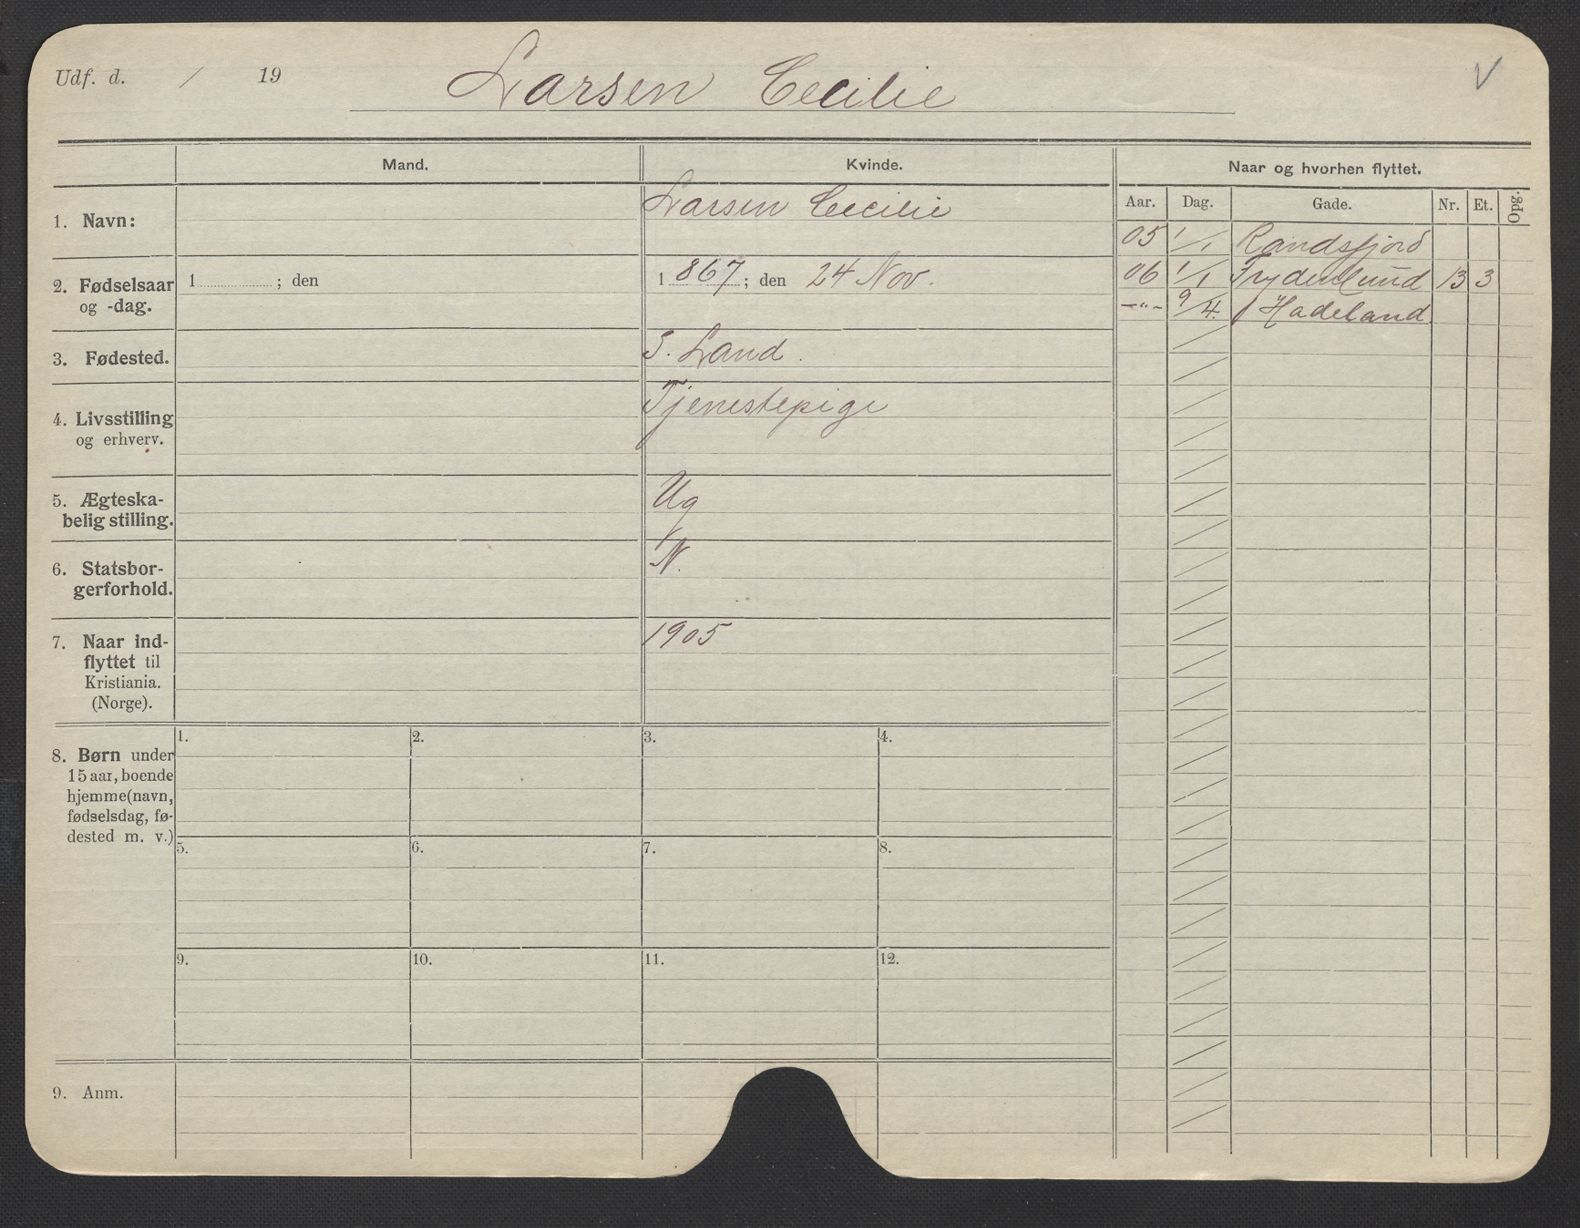 Udf. d. / 19 Larsen Cecilie V
Mand. Kvinde. Naar og hvorhen flyttet.
Aar. Dag. Gade. Nr. Et. Opg.
1. Navn: Larsen Cecilie
05 1/1 Randsfjord
2. Fødselsaar og -dag. 1 ; den 1867; den 24 Nov.
06 1/1 Frydenlund 13 3
—"— 9/4 Hadeland
3. Fødested. S. Land.
4. Livsstilling
og erhverv. Tjenestepige
5. Ægteska-
belig stilling. Ug
6. Statsbor-
gerforhold. N.
7. Naar ind-
flyttet til
Kristiania.
(Norge). 1905
8. Børn under
15 aar, boende
hjemme (navn,
fødselsdag, fø-
dested m. v.)
1. 2. 3. 4.
5. 6. 7. 8.
9. 10. 11. 12.
9. Anm.